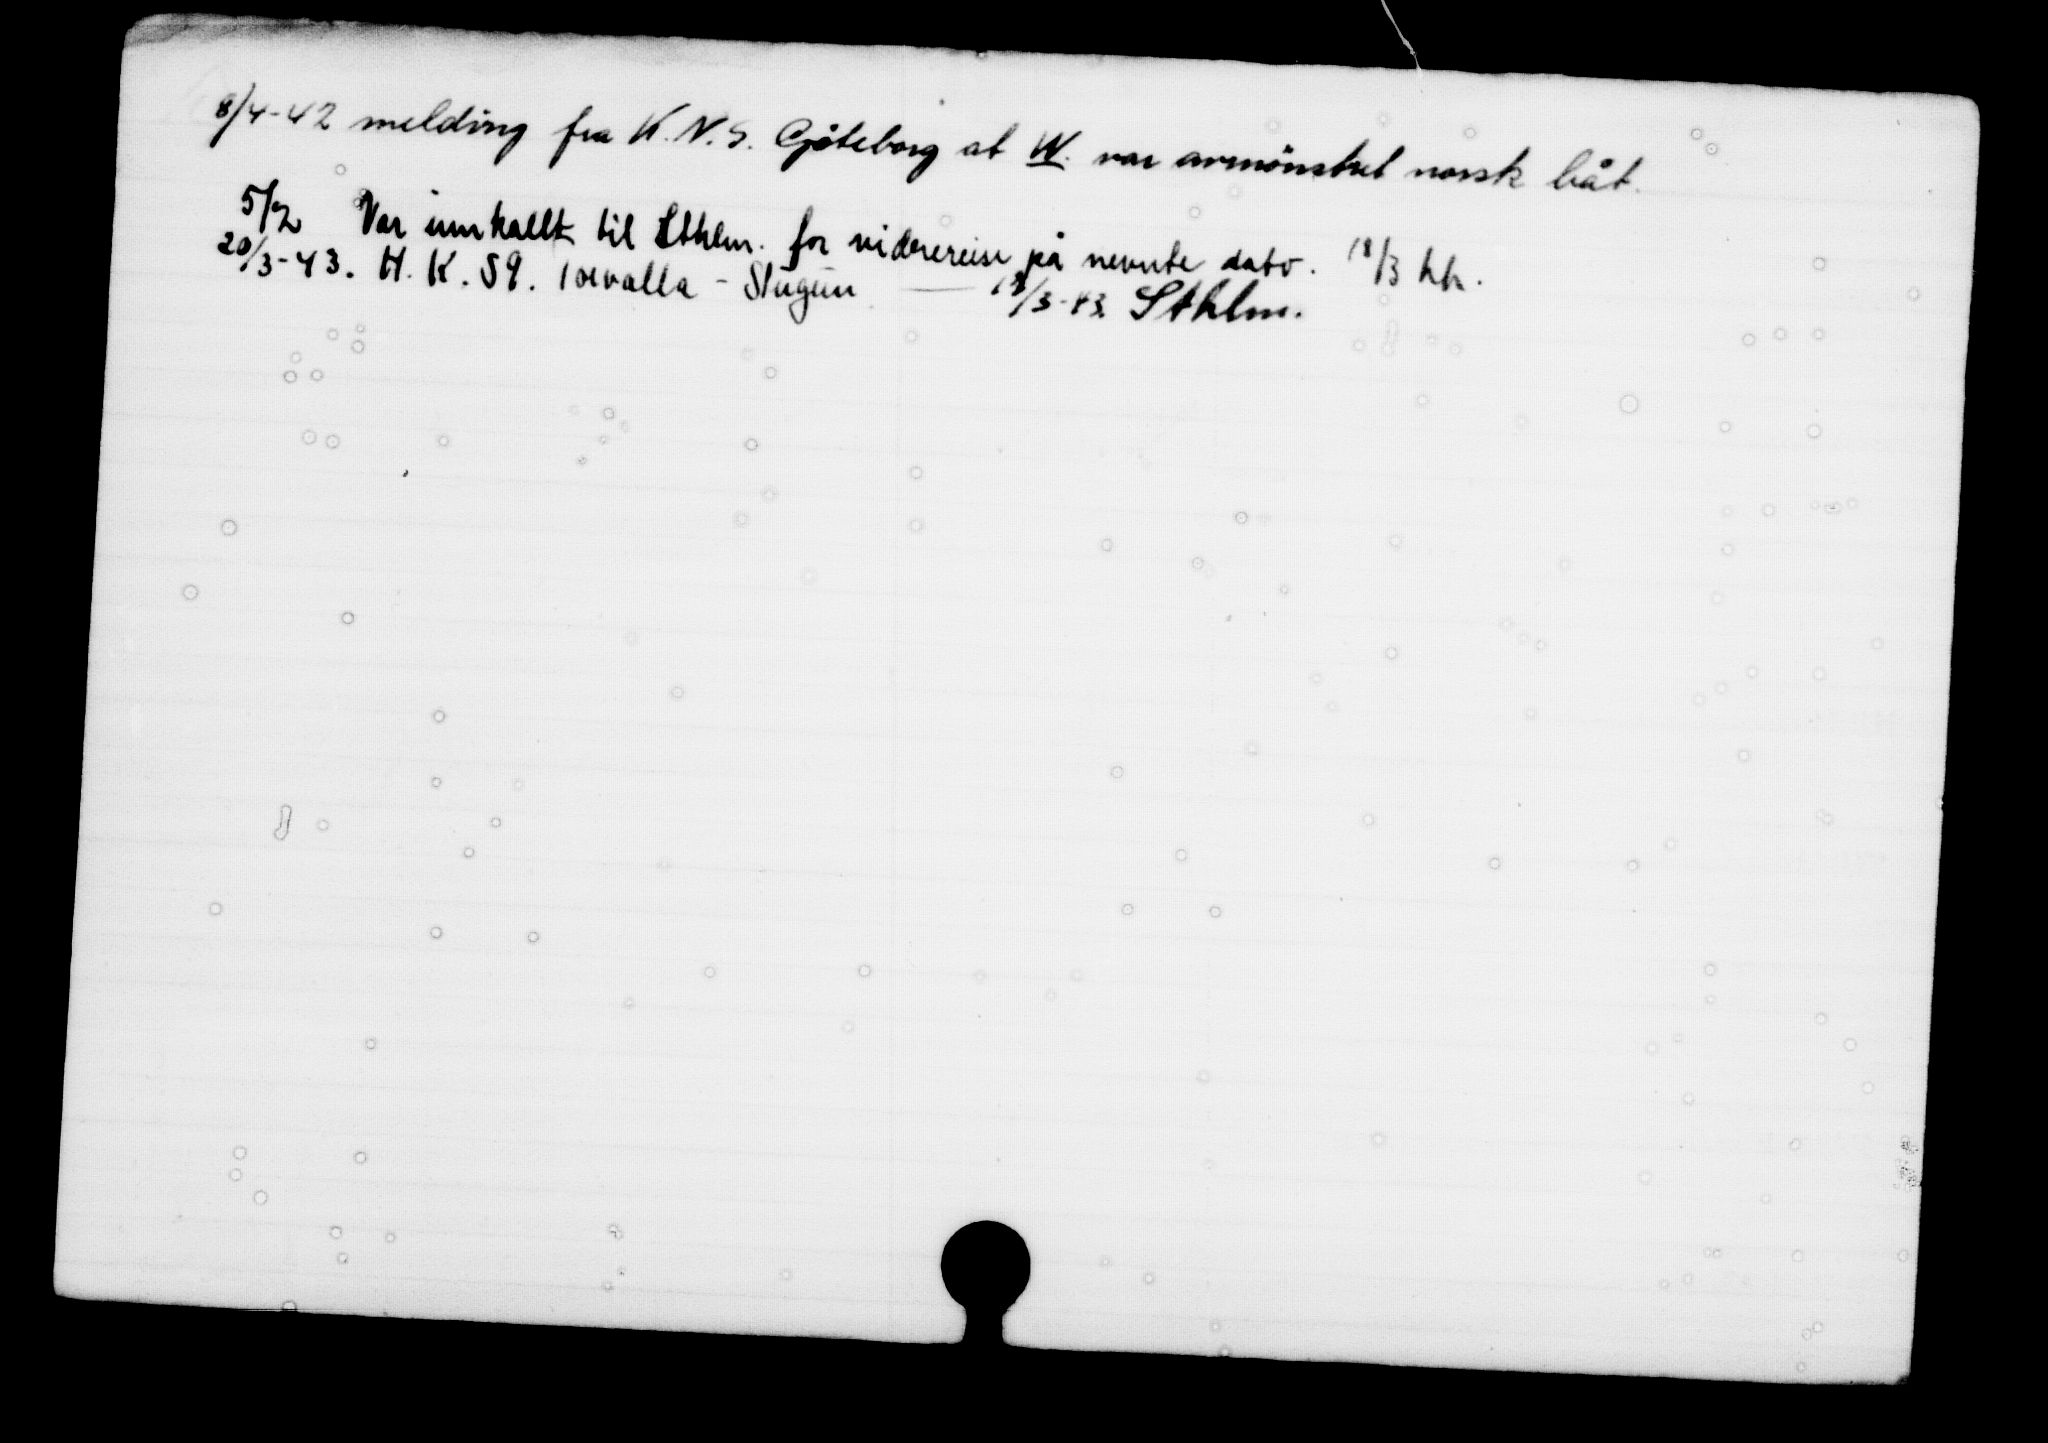 8/4-42 melding fra K.N.S. Göteborg at W. var avmönstret norsk båt.
5/2 Var innkallt til Sthlm. for viderereise på nevnte dato. 18/3 hh.
20/3-43. H. K. 59. Torvalla - Stugun — 18/3-43 Sthlm.